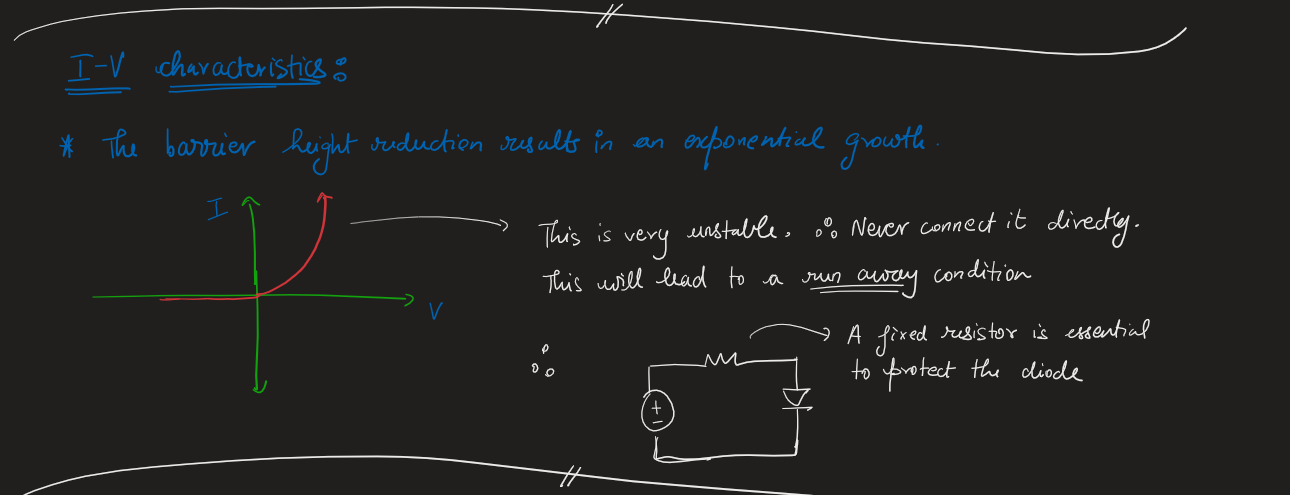 I-V characteristics:
* The barrier height reduction results in an exponential growth.
I
V
This is very unstable. ∴ Never connect it directly.
This will lead to a run away condition
∴
A fixed resistor is essential
to protect the diode
+
-